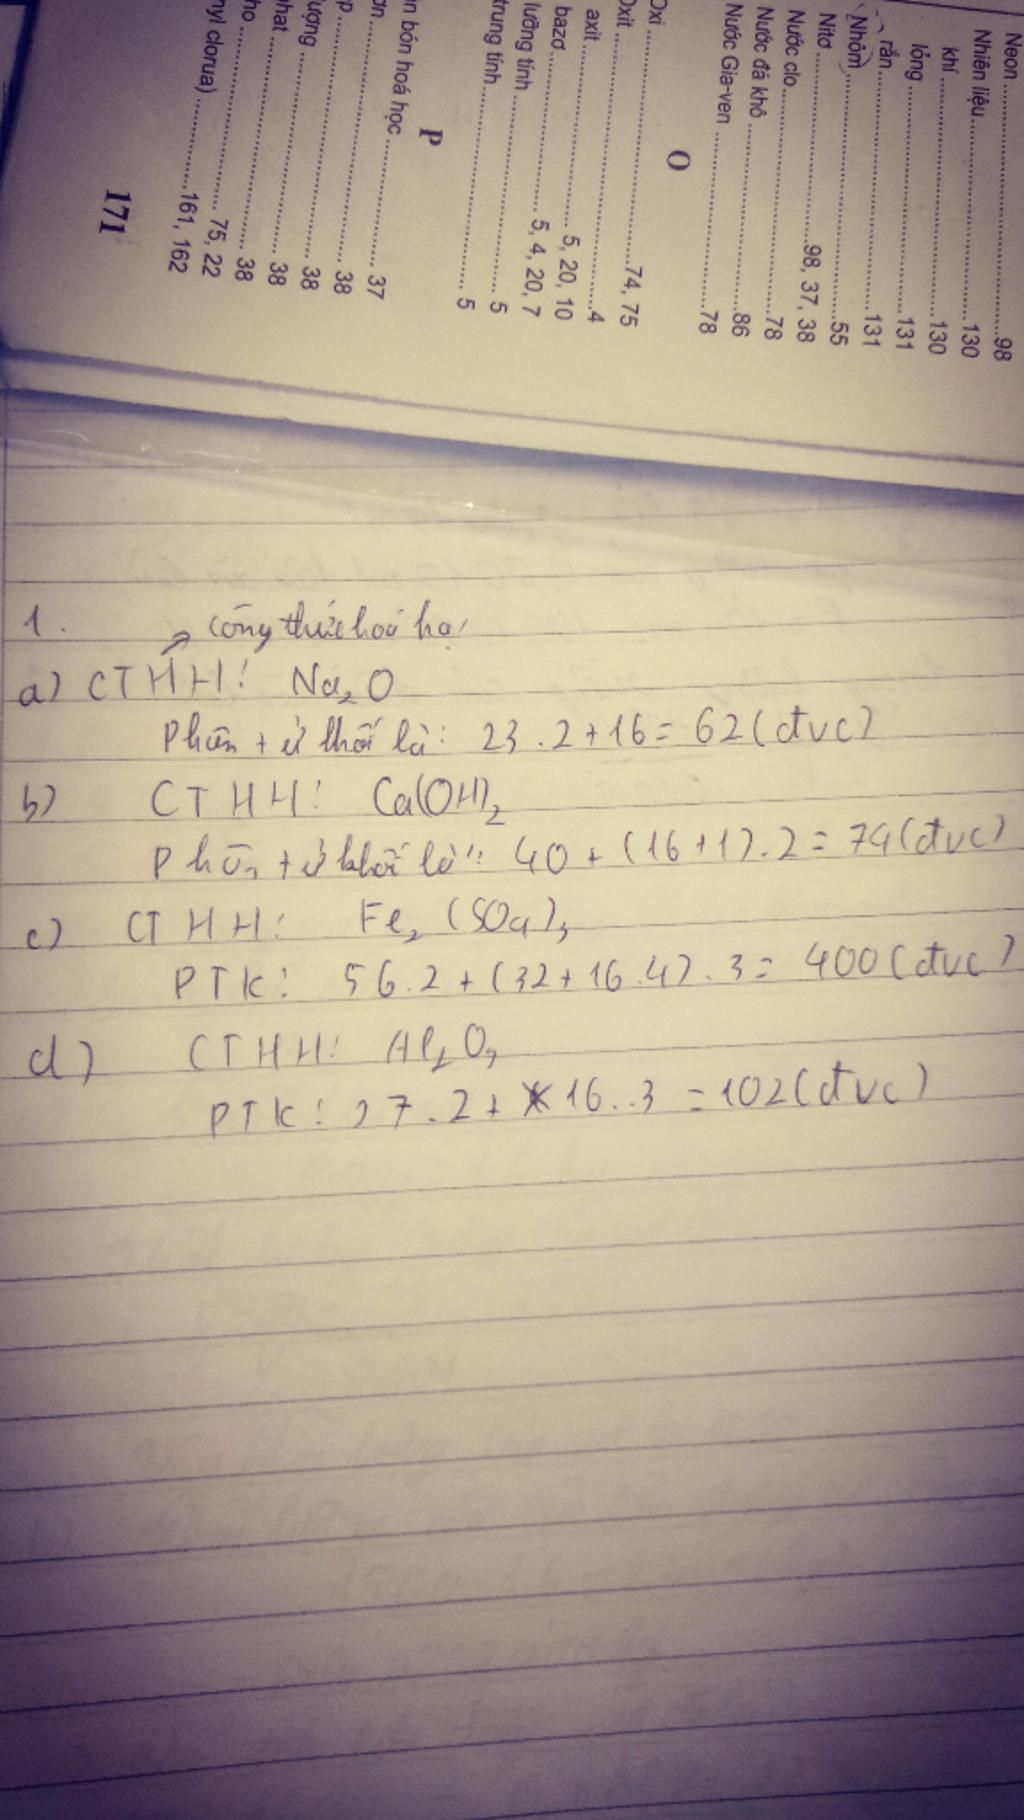 Neon ........ 98
Nhiên liệu ........ 130
khí ........ 130
lỏng ........ 131
rắn ........ 131
Nhôm ........ 55
Nitơ ........ 98, 37, 38
Nước clo ........ 78
Nước đá khô ........ 86
Nước Gia-ven ........ 78
O
Oxi ........ 74, 75
Oxit ........ 4
axit ........ 5, 20, 10
bazơ ........ 5, 4, 20, 7
lưỡng tính ........ 5
trung tính ........ 5
P
n bón hoá học ........ 37
ơn ........ 38
p ........ 38
ượng ........ 38
hat ........ 38
ho ........ 75, 22
nyl clorua) ........ 161, 162
171
1.
công thức hoá họ
a) CTHH: Na2O
Phân tử khối là: 23.2+16 = 62 (đvc)
b) CTHH: Ca(OH)2
Phân tử khối là: 40 + (16+1).2 = 74 (đvc)
c) CTHH: Fe2(SO4)3
PTK: 56.2 + (32+16.4).3 = 400 (đvc)
d) CTHH: Al2O3
PTK: 27.2 + 16..3 = 102 (đvc)